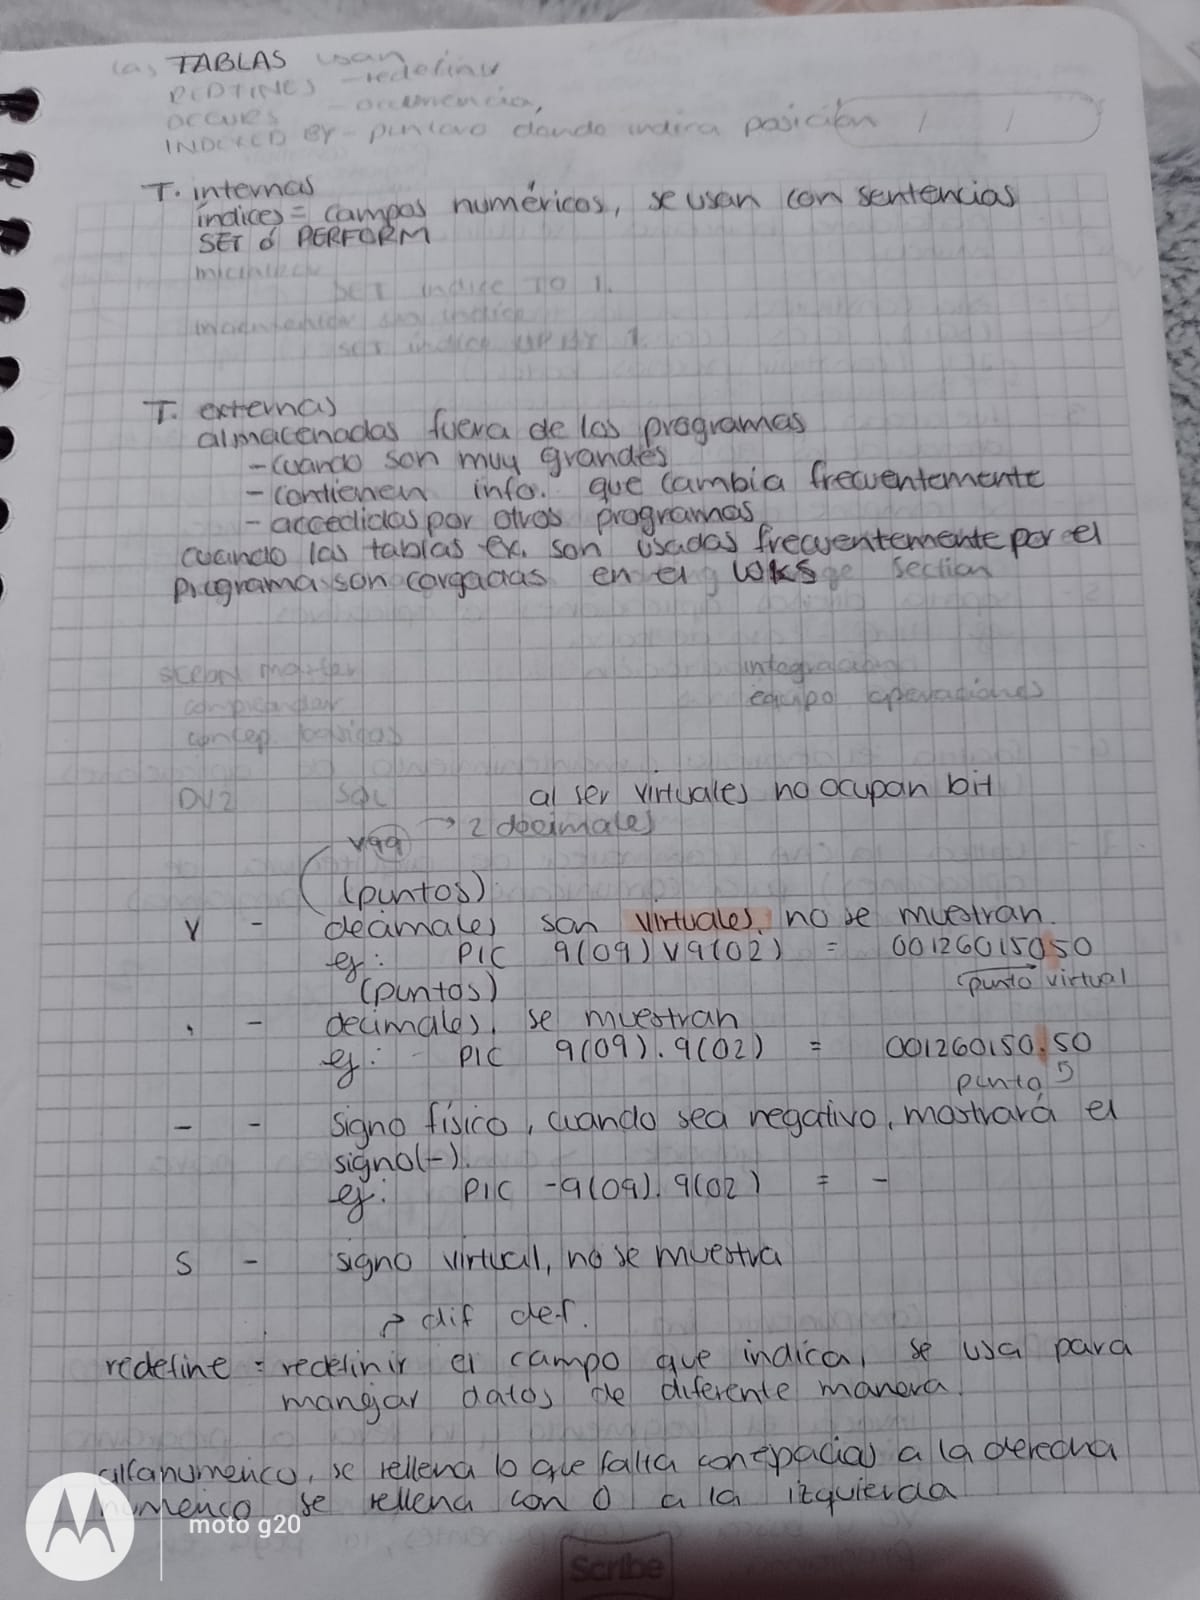 las TABLAS usan
REDFINES - redefinir
OCCURS - ocurrencia,
INDEXED BY - puntero donde indica posición / /
T. internas
índices = campos numéricos, se usan con sentencias
SET ó PERFORM
SET indice TO 1.
incrementar un indice
SET indice UP BY 1.
T. externas
almacenadas fuera de los programas
- cuando son muy grandes
- contienen info. que cambia frecuentemente
- accedidas por otros programas
cuando las tablas ex. son usadas frecuentemente por el
programa son cargadas en el WKS section
integración
equipo operaciones
concep.
SQL al ser virtuales no ocupan bit
V99 → 2 decimales
(puntos)
V - decimales son virtuales, no se muestran.
ej: PIC 9(09)V9(02) = 00126015050
(puntos) punto virtual
. - decimales, se muestran
ej: PIC 9(09).9(02) = 001260150.50
punto
- - signo físico, cuando sea negativo, mostrará el
signo(-).
ej: PIC -9(09).9(02) = -
S - signo virtual, no se muestra
→ dif def.
redefine = redefinir el campo que indica, se usa para
manejar datos de diferente manera.
alfanumerico, se rellena lo que falta con espacios a la derecha
numerico se rellena con 0 a la izquierda
moto g20
Scribe